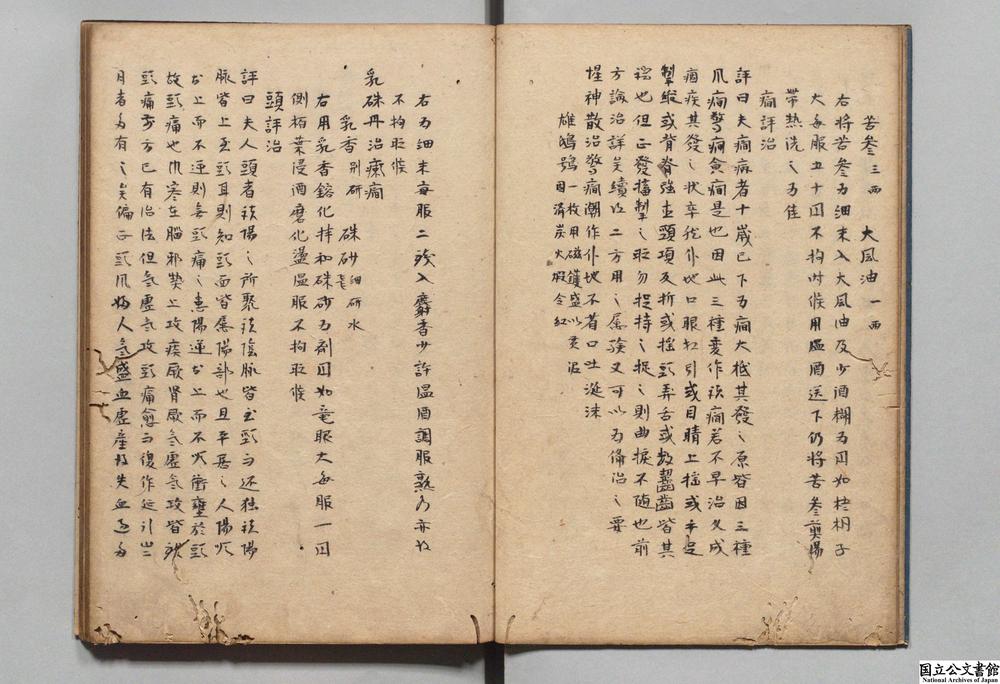 苦参三両　大風油一両
右将苦参為細末入大風油及少酒糊為円如梧桐子
大每服五十円不拘时候用温酒送下仍将苦参煎湯
帯熱洗之為佳
癇評治
評曰夫癇病者十歳已下為癇大抵其發之原皆因三種
風癇驚癇食癇是也因此三種変作諸癇若不早治久成
痼疾其發之状卒然仆地口眼相引或目睛上揺或手足
掣縦或背脊強直頸項反折或揺頭弄舌或数齧齒皆其
証也但正發搐掣之时勿捉持之捉之則曲捩不随也前
方論治詳矣續以二方用之屡験又可以為俻治之要
惺神散治驚癇潮作仆地不省口吐涎沫
雄鴟鴞一枚用磁罐盛以黄泥
固済炭火煅令紅
右為細末每服二銭入麝香少許温酒調服熟乃亦妙
不拘时候
乳硃丹治癲癇
乳香別研　硃砂細研水飛
右用乳香鎔化拌和硃砂為剤円如竜眼大每服一円
側栢葉浸酒磨化盪温服不拘时候
頭評治
評曰夫人頭者諸陽之所聚諸陰脉皆至頸而还独諸陽
脉皆上至頭耳則知頭面皆属陽部也且平居之人陽順
於上而不逆則無頭痛之患陽逆於上而不順衝壅於頭
故頭痛也巾寒在腦邪熱上攻痰厥腎厥氣虚氣攻皆
頭痛前方已有治法但氣虚氣攻頭痛愈而復作延引
月者多有之矣偏正頭風婦人氣盛血虚産後失血過多
国立公文書館
National Archives of Japan